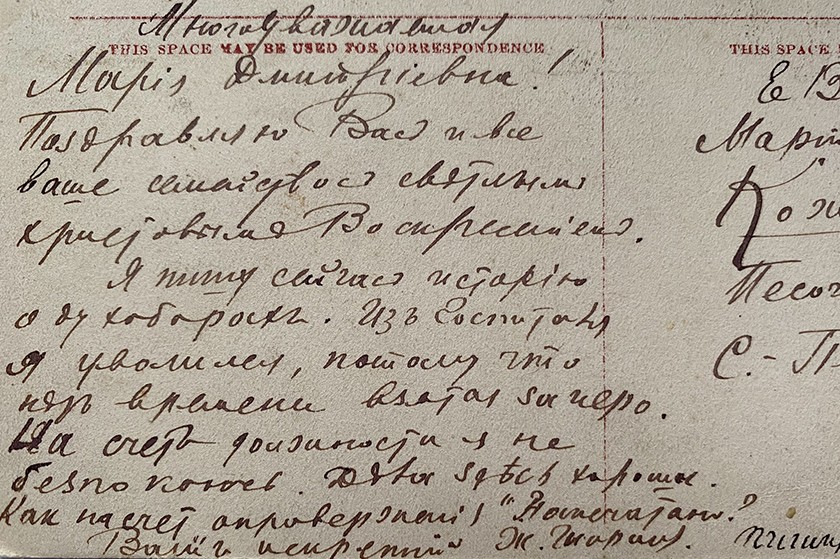 Многоуважаемая
THIS SPACE MAY BE USED FOR CORRESPONDENCE
THIS SPACE
Марія Дмитріевна!
Поздравляю Васъ и все
ваше семейство съ свѣтлымъ
христовымъ Воскресеніемъ.
Я пишу сейчасъ исторію
о духоборахъ. Изъ
я уволился, потому что
времени взяться за перо.
На счетъ должности я не
безпокоюсь. Дѣла здѣсь хороши.
Как насчет опроверженія? Напечатано?
Вашъ искренній Ж.
Е В
Мар
Кож
Песоч
С.-П